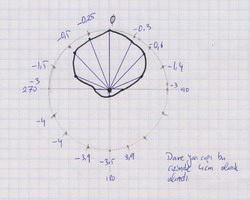 0
-0,25
-0.3
-0,5
-0,6
-1,5
-1,4
-3
-3
270
90
-4
-4
-3.9
-3.9
-3.5
180
Daire yarı çapı bu
çizimde 4cm olarak
alındı.